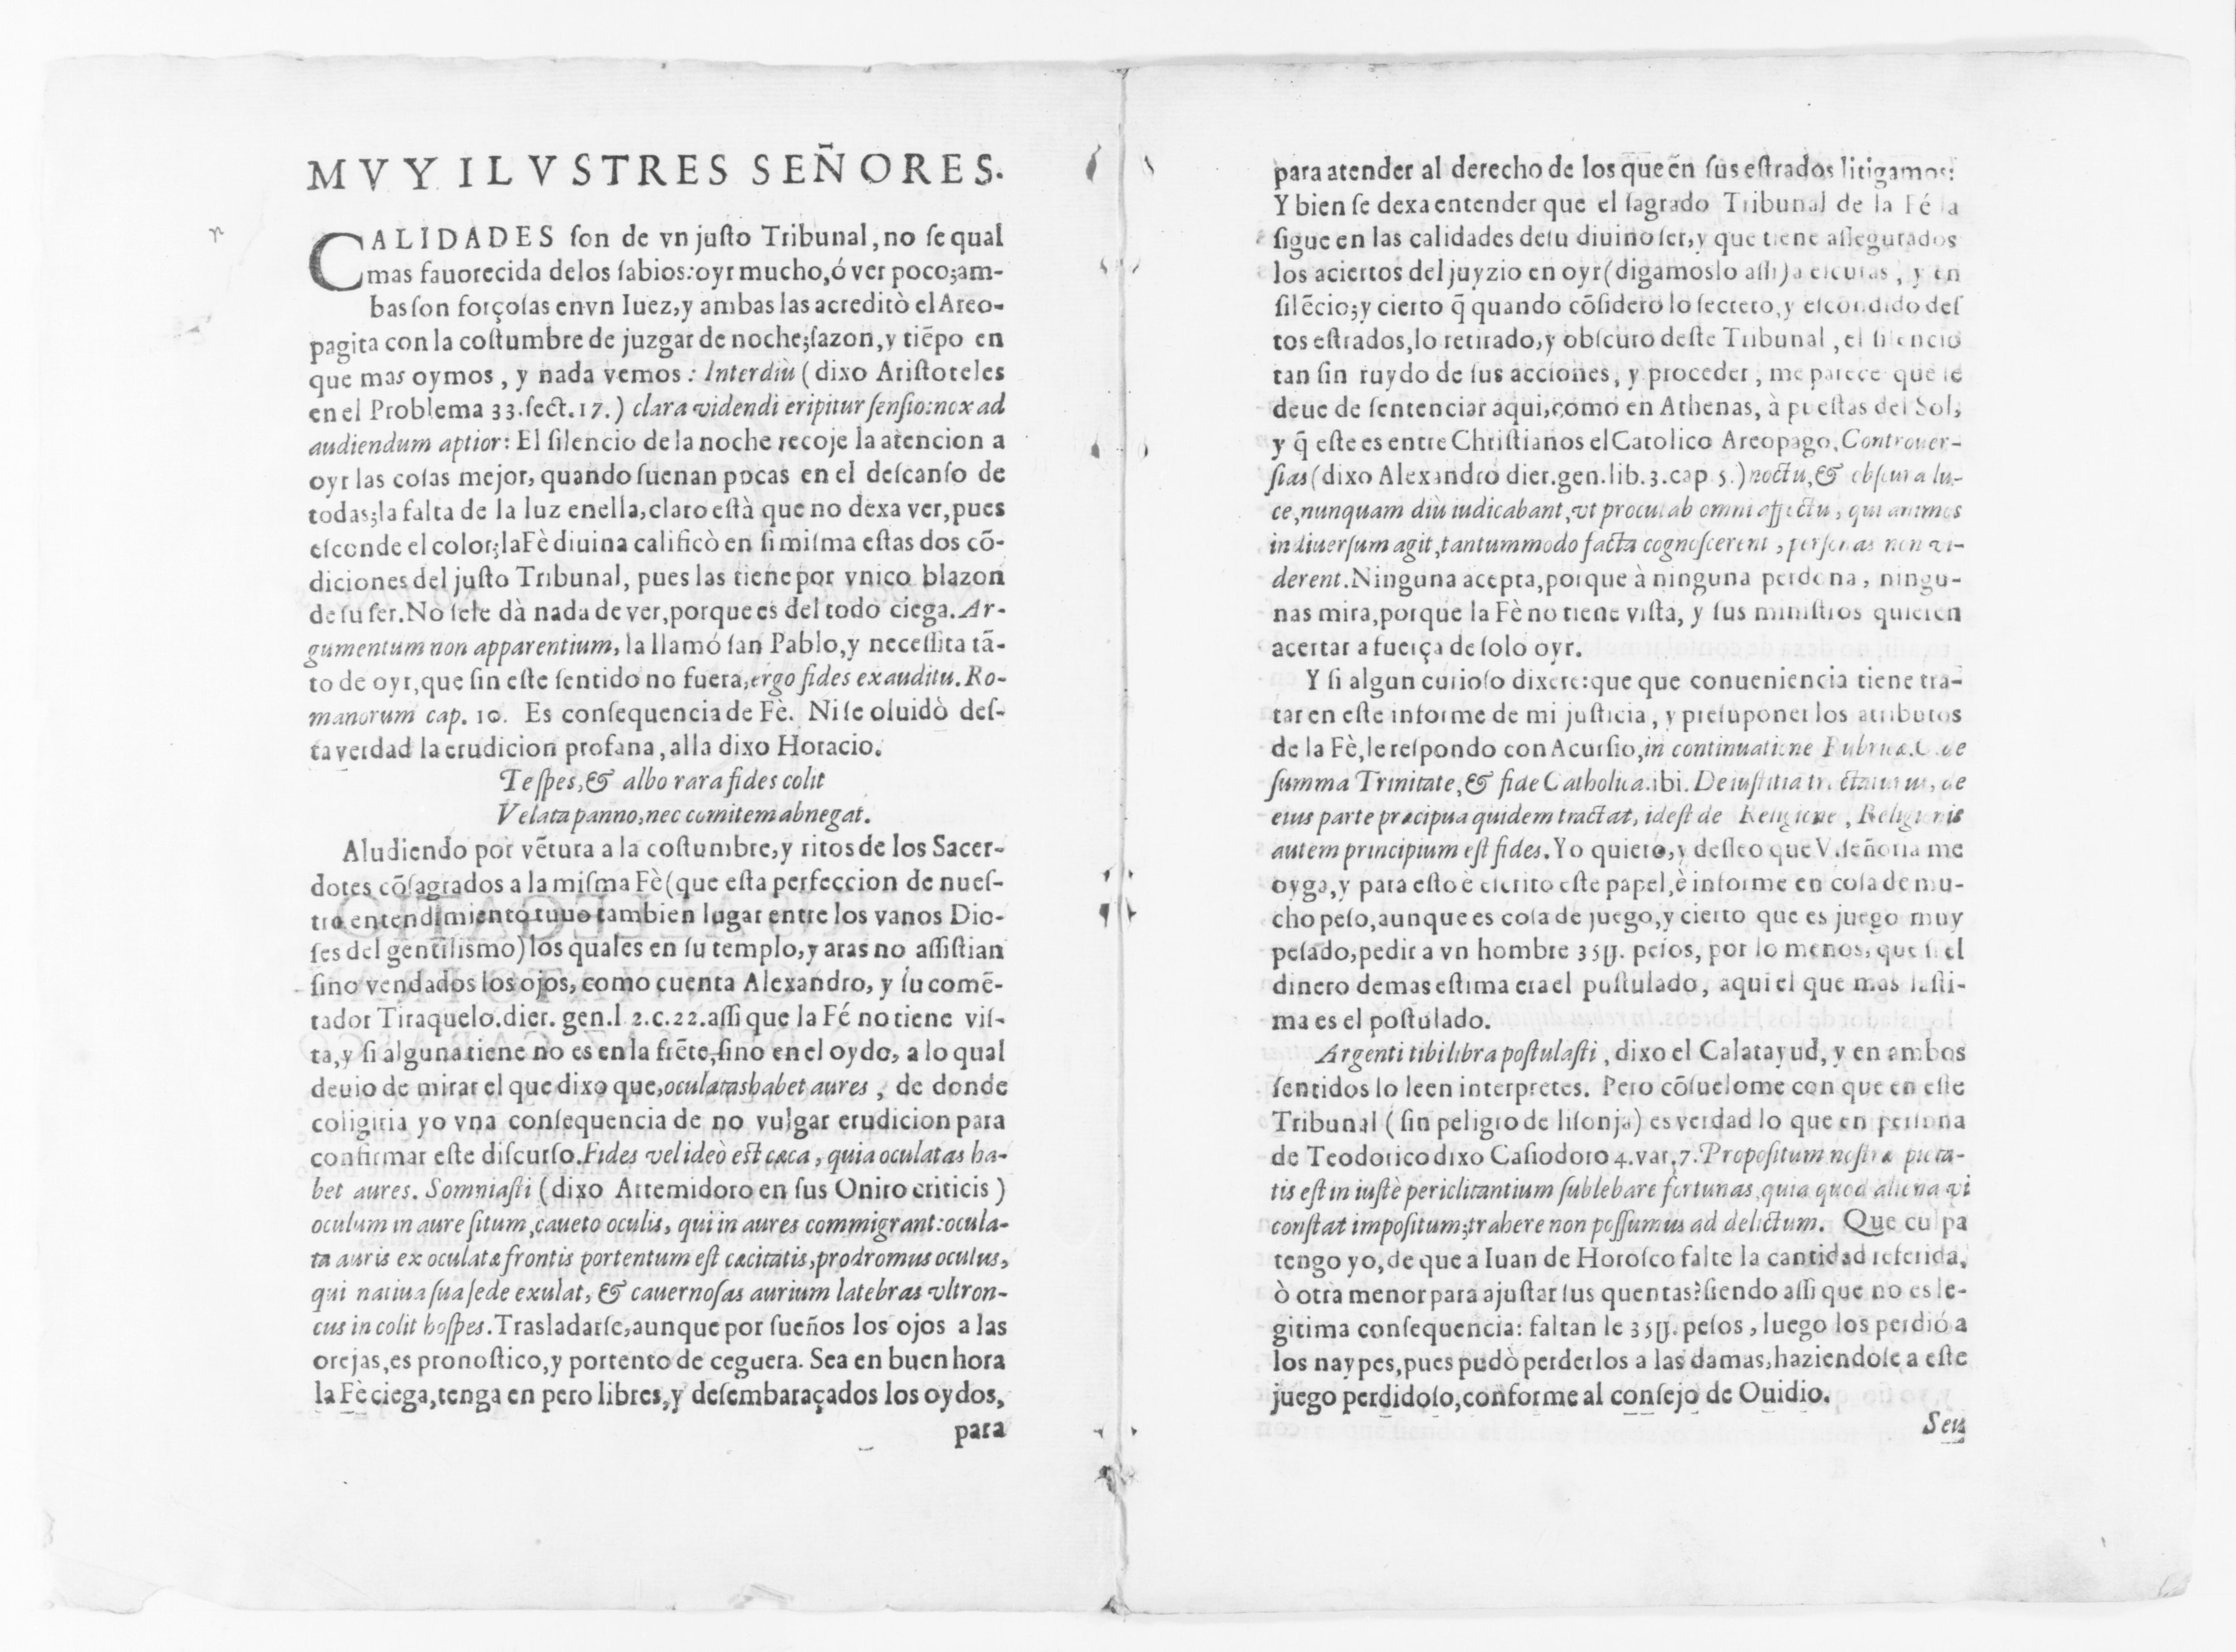 MVY ILVSTRES SEÑORES.
CALIDADES ſon de vn juſto Tribunal, no ſe qual
mas fauorecida delos ſabios: oyr mucho, ó ver poco; am-
bas ſon forçoſas en vn Iuez, y ambas las acreditò el Areo-
pagita con la coſtumbre de juzgar de noche; ſazon, y tiẽpo en
que mas oymos, y nada vemos: Interdiù (dixo Ariſtoteles
en el Problema 33. ſect. 17.) clara videndi eripitur ſenſio: nox ad
audiendum aptior: El ſilencio de la noche recoje la atencion a
oyr las coſas mejor, quando ſuenan pocas en el deſcanſo de
todas; la falta de la luz en ella, claro eſtà que no dexa ver, pues
eſconde el color; la Fè diuina calificò en ſi miſma eſtas dos cõ-
diciones del juſto Tribunal, pues las tiene por vnico blazon
de ſu ſer. No ſele dà nada de ver, porque es del todo ciega. Ar-
gumentum non apparentium, la llamó ſan Pablo, y neceſſita tã-
to de oyr, que ſin eſte ſentido no fuera, ergo fides ex auditu. Ro-
manorum cap. 10. Es conſequencia de Fè. Ni ſe oluidò deſ-
ta verdad la erudicion profana, alla dixo Horacio.
Te ſpes, & albo rara fides colit
Velata panno, nec comitem abnegat.
Aludiendo por vẽtura a la coſtumbre, y ritos de los Sacer-
dotes cõſagrados a la miſma Fè (que eſta perfeccion de nueſ-
tro entendimiento tuuo tambien lugar entre los vanos Dio-
ſes del gentiliſmo) los quales en ſu templo, y aras no aſſiſtian
ſino vendados los ojos, como cuenta Alexandro, y ſu comẽ-
tador Tiraquelo. dier. gen. l 2. c. 22. aſſi que la Fé no tiene viſ-
ta, y ſi alguna tiene no es en la frẽte, ſino en el oydo, a lo qual
deuio de mirar el que dixo que, oculatas habet aures, de donde
coligiria yo vna conſequencia de no vulgar erudicion para
confirmar eſte diſcurſo. Fides vel ideò eſt cæca, quia oculatas ha-
bet aures. Somniaſti (dixo Artemidoro en ſus Oniro criticis)
oculum in aure ſitum, caueto oculis, qui in aures commigrant: ocula-
ta auris ex oculatæ frontis portentum eſt cæcitatis, prodromus oculus,
qui natiua ſua ſede exulat, & cauernoſas aurium latebras vltron-
cus incolit hoſpes. Trasladarſe, aunque por ſueños los ojos a las
orejas, es pronoſtico, y portento de ceguera. Sea en buen hora
la Fè ciega, tenga en pero libres, y deſembaraçados los oydos,
para
para atender al derecho de los que en ſus eſtrados litigamos:
Y bien ſe dexa entender que el ſagrado Tribunal de la Fé la
ſigue en las calidades de ſu diuino ſer, y que tiene aſſegurados
los aciertos del juyzio en oyr (digamoslo aſſi) a eſcuras, y en
ſilẽcio; y cierto q̃ quando cõſidero lo ſecreto, y eſcondido deſ
tos eſtrados, lo retirado, y obſcuro deſte Tribunal, el ſilencio
tan ſin ruydo de ſus acciones, y proceder, me parece que ſe
deue de ſentenciar aqui, como en Athenas, à pueſtas del Sol,
y q̃ eſte es entre Chriſtianos el Catolico Areopago, Controuer-
ſias (dixo Alexandro dier. gen. lib. 3. cap 5.) noctu, & obſcura lu-
ce, nunquam diù iudicabant, vt procul ab omni affectu, qui animos
in diuerſum agit, tantummodo facta cognoſcerent, perſonas non vi-
derent. Ninguna acepta, porque à ninguna perdona, ningu-
nas mira, porque la Fè no tiene viſta, y ſus miniſtros quieren
acertar a fuerça de ſolo oyr.
Y ſi algun curioſo dixere: que que conueniencia tiene tra-
tar en eſte informe de mi juſticia, y preſuponer los atributos
de la Fè, le reſpondo con Acurſio, in continuatione Rubricæ. C. de
ſumma Trinitate, & fide Catholica. ibi. De iuſtitia tractaturus, de
eius parte præcipua quidem tractat, ideſt de Religione, Religionis
autem principium eſt fides. Yo quiero, y deſſeo que V. ſeñoria me
oyga, y para eſto è eſcrito eſte papel, è informe en coſa de mu-
cho peſo, aunque es coſa de juego, y cierto que es juego muy
peſado, pedir a vn hombre 35U. peſos, por lo menos, que ſi el
dinero demas eſtima era el puſtulado, aqui el que mas laſti-
ma es el poſtulado.
Argenti tibi libra poſtulaſti, dixo el Calatayud, y en ambos
ſentidos lo leen interpretes. Pero cõſuelome con que en eſte
Tribunal (ſin peligro de liſonja) es verdad lo que en perſona
de Teodorico dixo Caſiodoro 4. var. 7. Propoſitum noſtræ pieta-
tis eſt in iuſtè periclitantium ſublebare fortunas, quia quod aliena vi
conſtat impoſitum; trahere non poſſumus ad delictum. Que culpa
tengo yo, de que a Iuan de Horoſco falte la cantidad referida,
ò otra menor para ajuſtar ſus quentas? ſiendo aſſi que no es le-
gitima conſequencia: faltan le 35U. peſos, luego los perdió a
los naypes, pues pudò perderlos a las damas, haziendole a eſte
juego perdidoſo, conforme al conſejo de Ouidio.
Seu